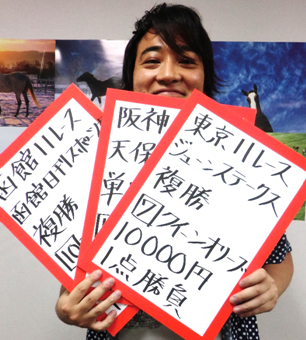 函館11レース
函館日刊スポーツ
複勝
阪神
天保
単
東京11レース
ジューンステークス
複勝
7クイーンオリーブ
10000円
1点勝負